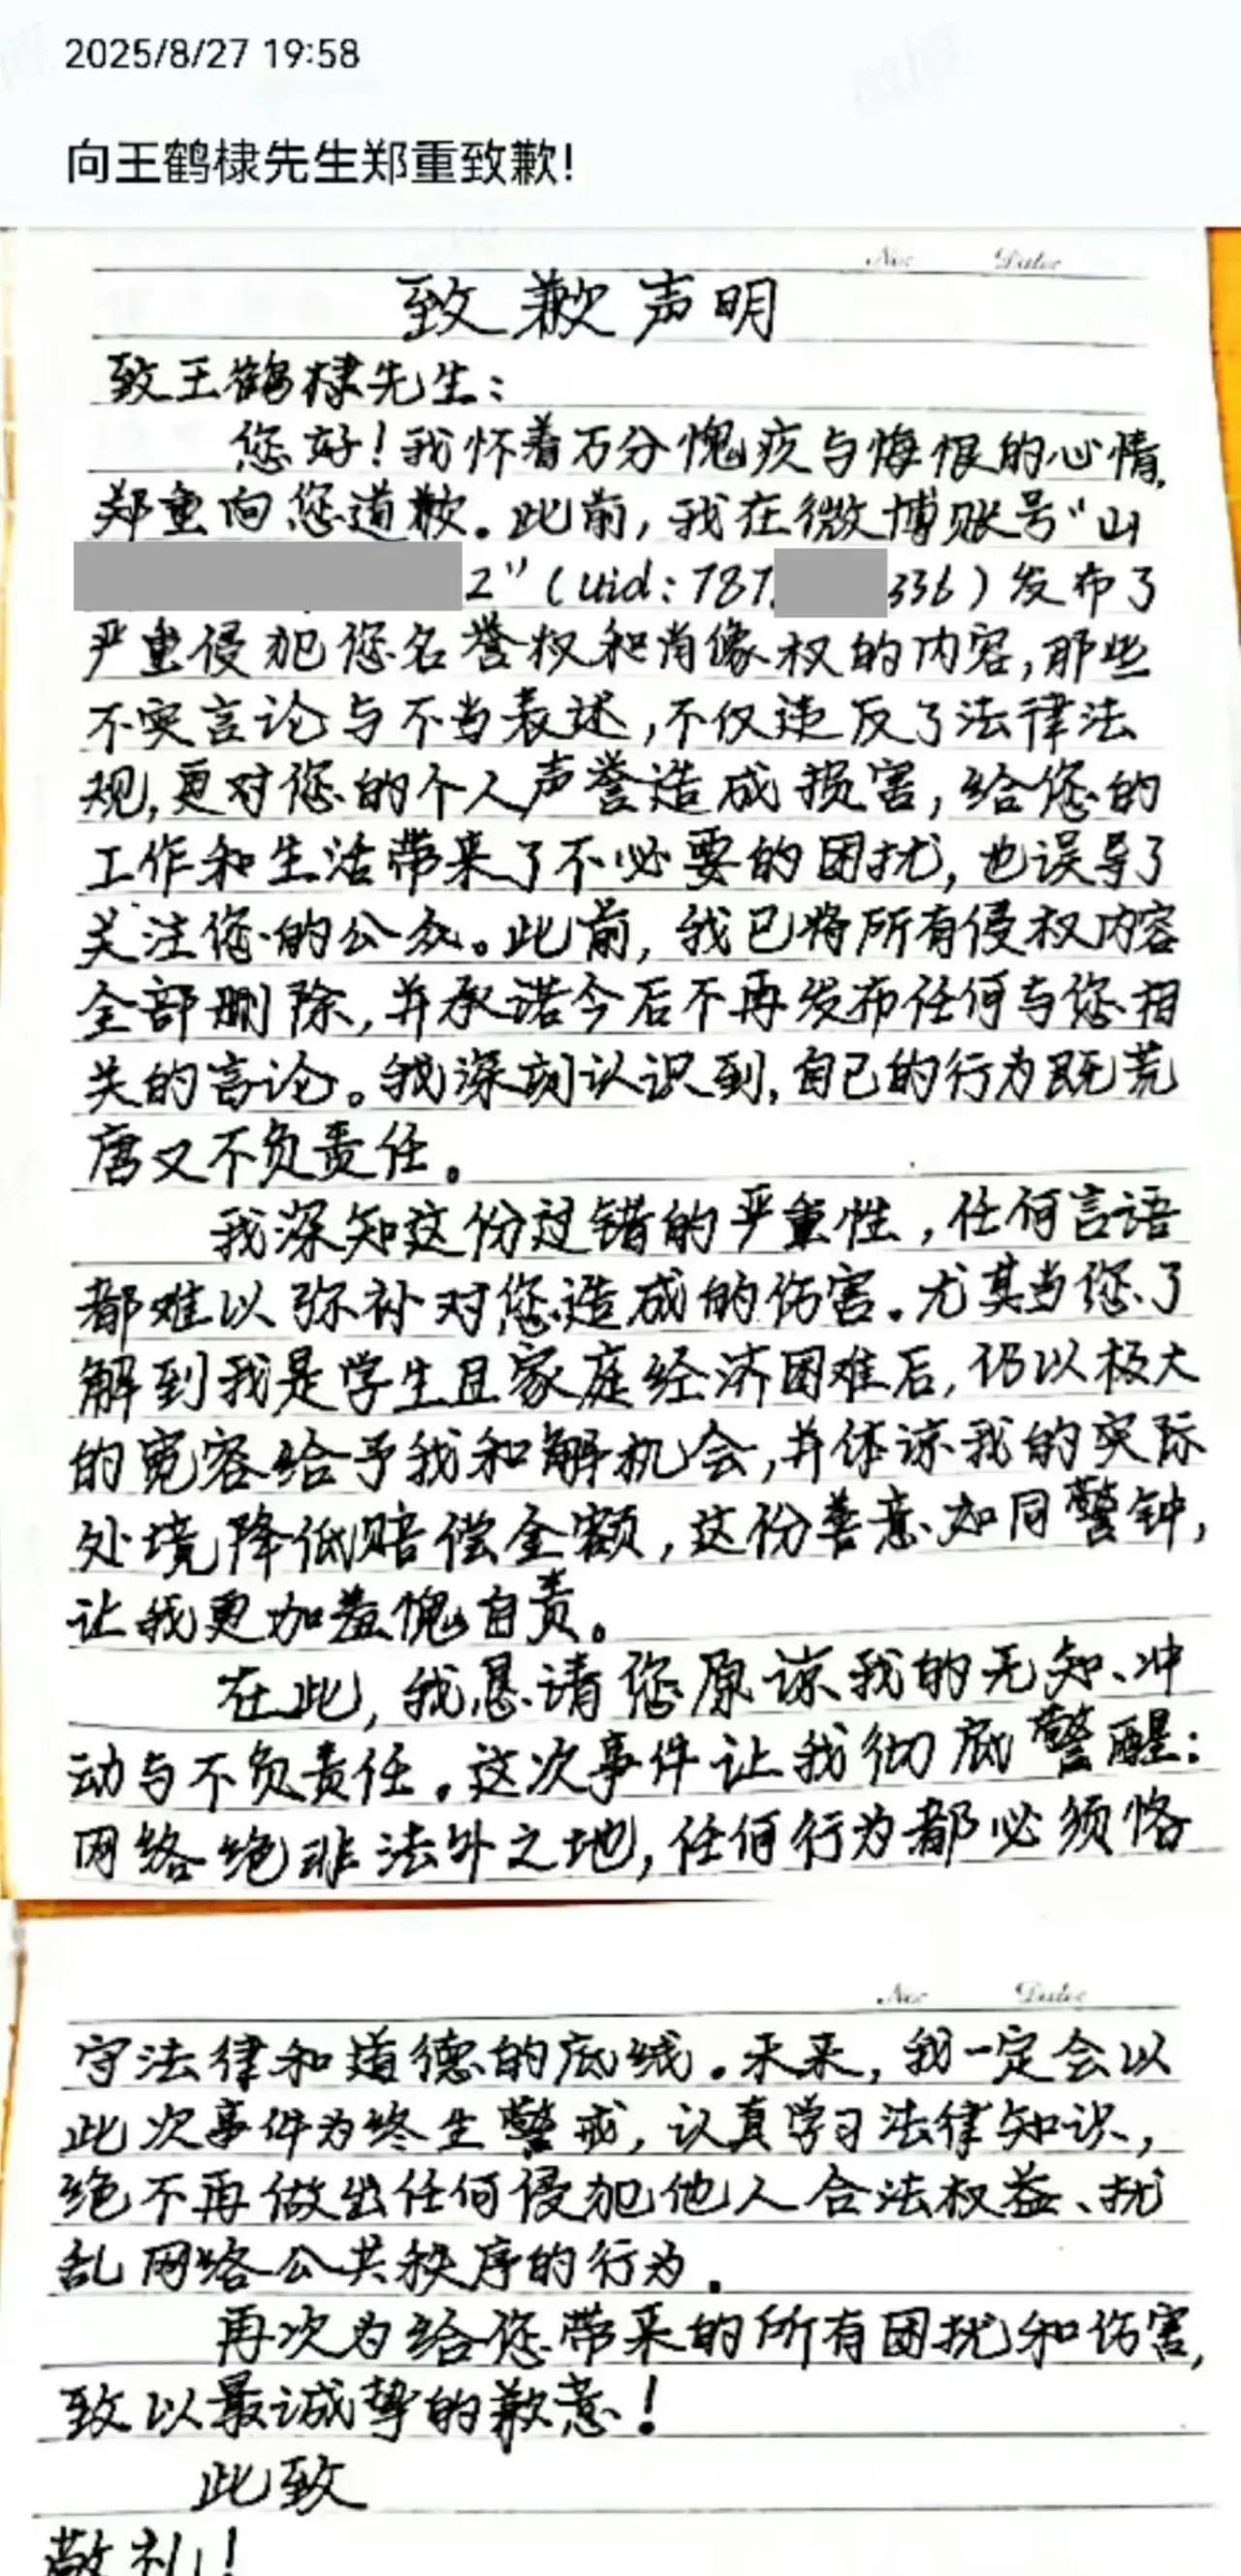 2025/8/27 19:58
向王鹤棣先生郑重致歉!
No: Date:
致歉声明
致王鹤棣先生:
您好!我怀着万分愧疚与悔恨的心情,
郑重向您道歉。此前,我在微博账号“山
2”(uid:787 336)发布了
严重侵犯您名誉权和肖像权的内容,那些
不实言论与不当表述,不仅违反了法律法
规,更对您的个人声誉造成损害,给您的
工作和生活带来了不必要的困扰,也误导了
关注您的公众。此前,我已将所有侵权内容
全部删除,并承诺今后不再发布任何与您相
关的言论。我深刻认识到,自己的行为既荒
唐又不负责任。
我深知这份过错的严重性,任何言语
都难以弥补对您造成的伤害。尤其当您了
解到我是学生且家庭经济困难后,仍以极大
的宽容给予我和解机会,并体谅我的实际
处境降低赔偿金额,这份善意如同警钟,
让我更加羞愧自责。
在此,我恳请您原谅我的无知、冲
动与不负责任。这次事件让我彻底警醒:
网络绝非法外之地,任何行为都必须恪
No: Date:
守法律和道德的底线。未来,我一定会以
此次事件为终生警戒,认真学习法律知识,
绝不再做出任何侵犯他人合法权益、扰
乱网络公共秩序的行为。
再次为给您带来的所有困扰和伤害,
致以最诚挚的歉意!
此致
敬礼!